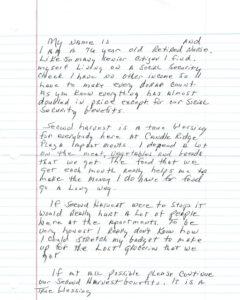 My Name is And
I am a 74 year old Retired Nurse.
Like so many senior citizen I find
myself Living on a Social Security
Check I have no other income so I
have to make every dollar count
As you know everything has almost
doubled in price except for our Social
Security benefits.
Second Harvest is a true blessing
for everybody here at Candle Ridge
I depend a lot
on the meat, vegetables and breads
that we get The food that we
get each month Really helps me to
make the money I do have for food
go a Long way.
If Second Harvest were to stop it
would really hurt A Lot of people
here at the apartments. To be
very honest I Really don't know how
I could stretch my budget to make
up for the Lost groceries that we
get
If at all possible please continue
our Second Harvest benefits. It is a
True blessing